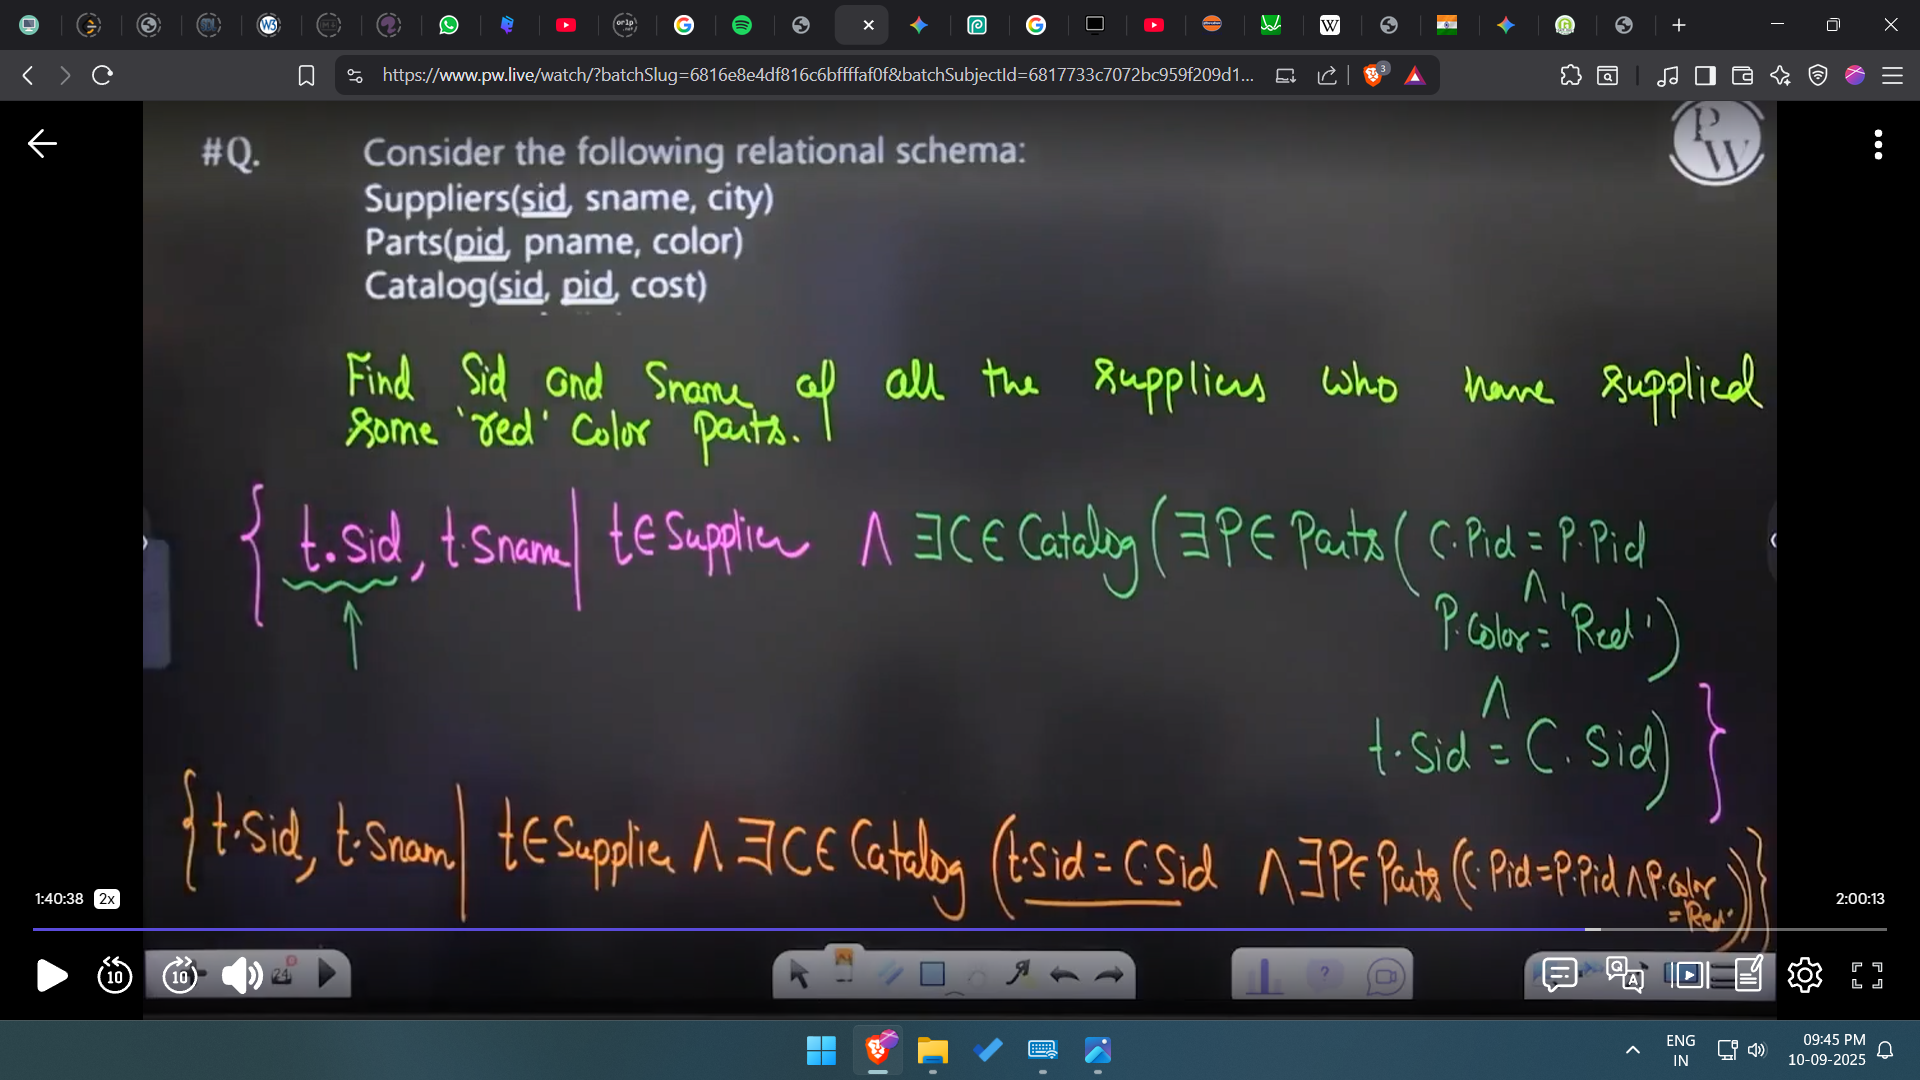 https://www.pw.live/watch/?batchSlug=6816e8e4df816c6bffffaf0f&batchSubjectId=6817733c7072bc959f209d1...
3
PW
#Q. Consider the following relational schema:
Suppliers(sid, sname, city)
Parts(pid, pname, color)
Catalog(sid, pid, cost)
Find Sid and Sname of all the suppliers who have supplied
some 'red' Color parts.
{ t.Sid, t.Sname | t∈Supplier ∧ ∃C∈Catalog(∃P∈Parts( C.Pid = P.Pid
∧
P.Color = 'Red')
∧
t.Sid = C.Sid) }
{t.Sid, t.Snam | t∈Supplier ∧ ∃C∈Catalog (t.Sid = C.Sid ∧ ∃P∈Parts (C.Pid=P.Pid ∧ P.Color
= 'Red'))}
1:40:38 2x 2:00:13
10 10 24
ENG
IN
09:45 PM
10-09-2025